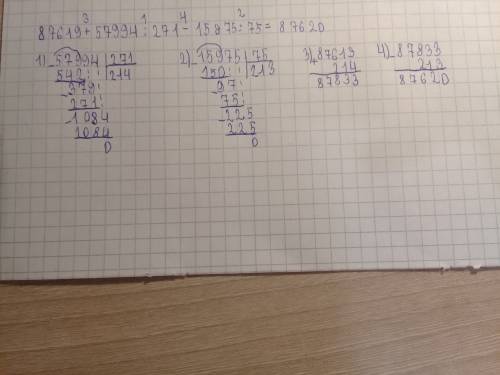 3 1 4 2
87619 + 57994 : 271 - 15975 : 75 = 87620
1) 57994 | 271
542 | 214
- 379
271
- 1084
1084
0
2) 15975 | 75
150 | 213
- 97
75
- 225
225
0
3) 87619
214
87833
4) - 87833
213
87620